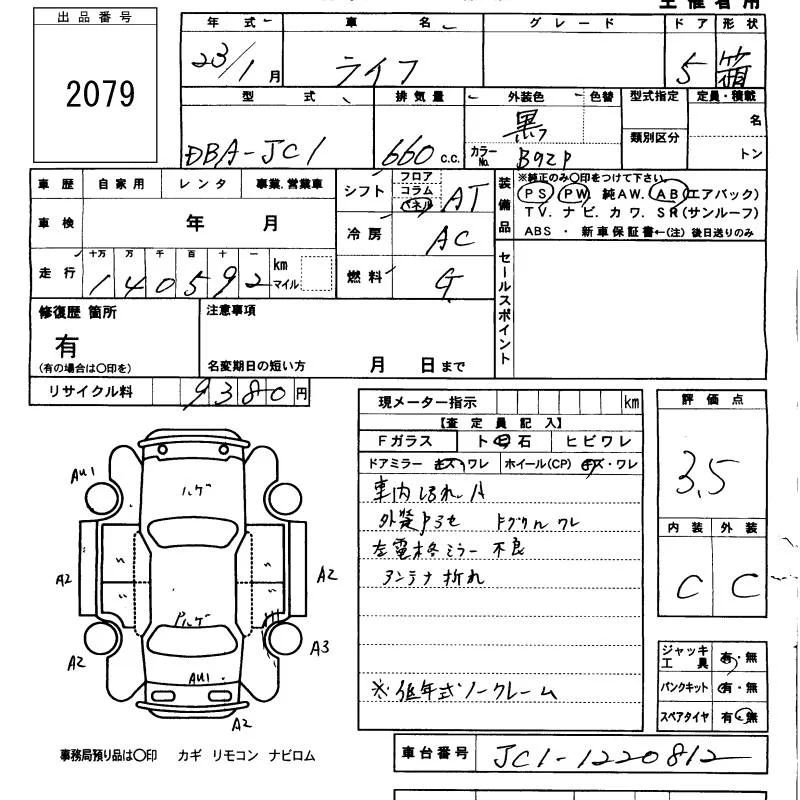 主催者用
出品番号
2079
年式 車名 グレード ドア 形状
23/1月 ライフ 5 箱
型式 排気量 外装色 色替 型式指定 定員・積載
DBA-JC1 660 c.c. 黒 カラーNo. B92P 類別区分 名
トン
車歴 自家用 レンタ 事業.営業車
車検 年 月
走行 十万 万 千 百 十 一 km マイル
140592
シフト フロア コラム パネル AT
冷房 AC
燃料 G
装備品 ※純正のみ〇印をつけて下さい。
PS PW 純AW. AB(エアバック)
TV. ナビ. カワ. SR(サンルーフ)
ABS ・ 新車保証書←(注) 後日送りのみ
セールスポイント
修復歴 箇所
有
(有の場合は〇印を)
注意事項
名変期日の短い方 月 日まで
リサイクル料 9380円
現メーター指示 km
【査定員記入】
Fガラス ト石 ヒビワレ
ドアミラー キズ・ワレ ホイール(CP) キズ・ワレ
車内 汚れ A
外装 キズ ワレ
左電格ミラー 不良
アンテナ 折れ
※低年式ノークレーム
評価点
3.5
内装 外装
C C
ジャッキ工具 有・無
パンクキット 有・無
スペアタイヤ 有・無
AU1
ハゲ
A2
A2
Pハゲ
A2
A3
AU1
A2
事務局預り品は〇印 カギ リモコン ナビロム
車台番号 JC1-1220812